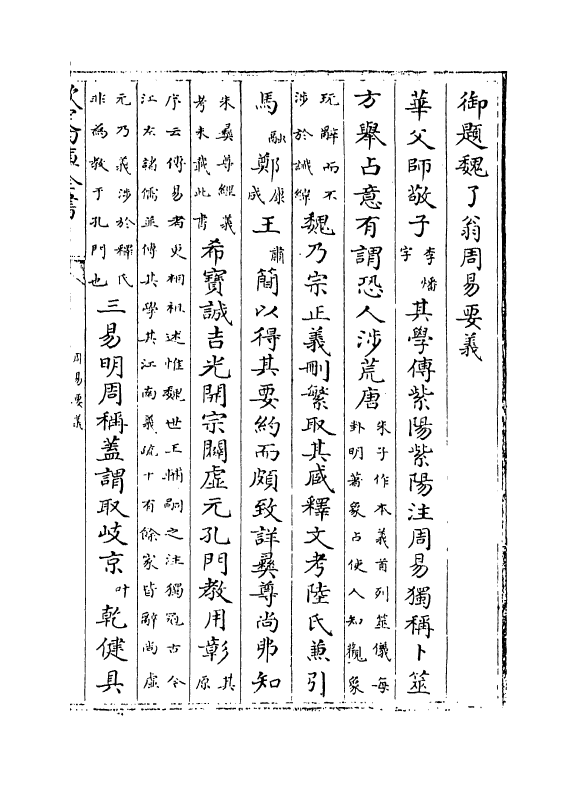 御題魏了翁周易要義
華父師敬子李燔字其學傳紫陽紫陽注周易獨稱卜筮
方舉占意有謂恐人涉荒唐朱子作本義首列筮儀每卦明著象占使人知觀象
玩辭而不涉於讖緯魏乃宗正義刪繁取其臧釋文考陸氏兼引
馬融鄭康成王肅簡以得其要約而頗致詳彛尊尚弗知
朱彛尊經義考未載此書希寶誠吉光開宗闢虛元孔門教用彰其原
序云傳易者更相祖述惟魏世王輔嗣之注獨冠古今江左諸儒並傳其學其江南義疏十有餘家皆辭尚虛
元乃義涉於釋氏非為教于孔門也三易明周稱蓋謂取岐京叶乾健具
欽定四庫全書
周易要義